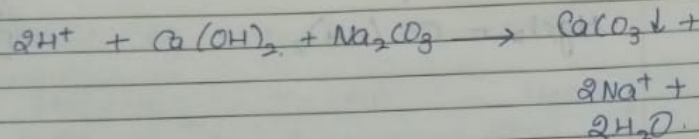 2H⁺ + Ca(OH)₂ + Na₂CO₃ ⟶ CaCO₃↓ +
2Na⁺ +
2H₂O.